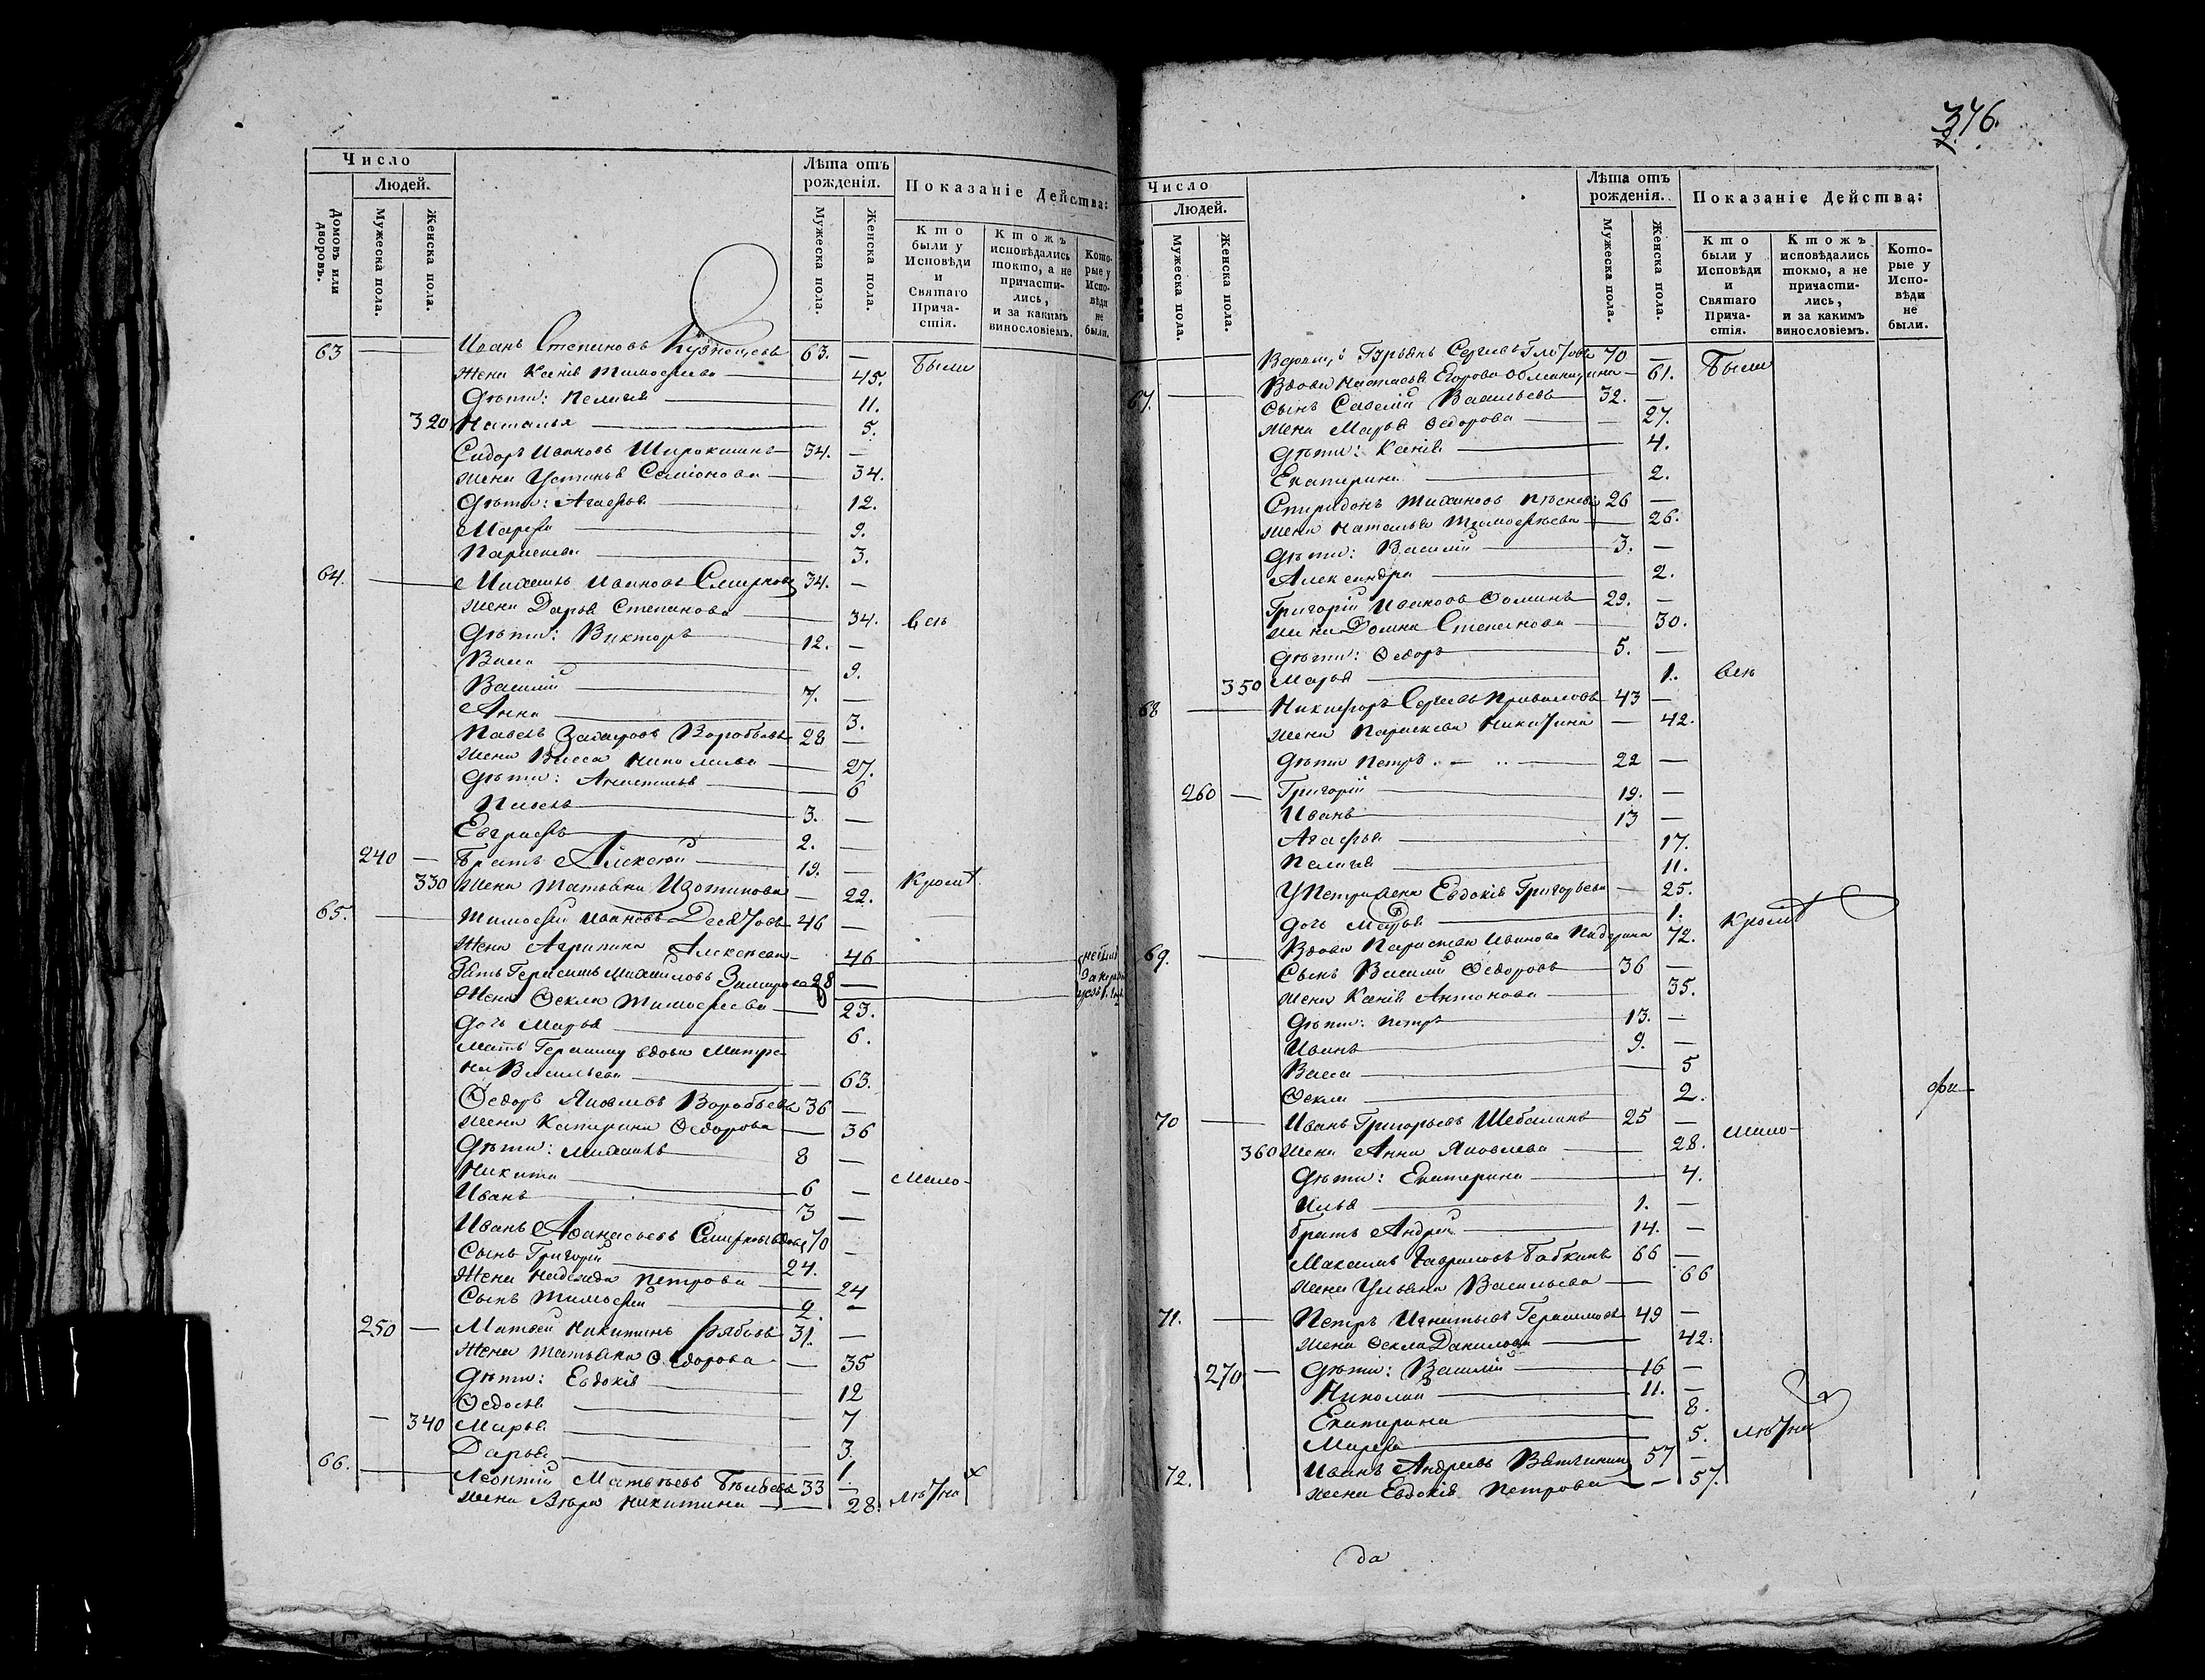 376.
Число
Людей.
Домовъ или дворовъ.
Мужеска пола.
Женска пола.
Лѣта отъ рожденія.
Мужеска пола.
Женска пола.
Показаніе Действа:
Кто были у Исповѣди и Святаго Прича-стія.
Ктожъ исповѣдались токмо, а не причасти-лись, и за какимъ винословіемъ.
Кото-рые у Испо-вѣди не были.
63 — Иванъ Степановъ Кузнецовъ 63. — Были
жена Ксенія Тимофеева — 45.
дѣти: Пелагея — 11.
320 Наталья — 5.
Сидоръ Ивановъ Широкшинъ 34. —
жена Устинья Семіонова — 34.
дѣти: Агафья — 12.
Марфа — 9.
Параскева — 3.
64. — Михаилъ Ивановъ Смирновъ 34. —
жена Дарья Степанова — 34. всѣ
дѣти: Викторъ 12. —
Васса — 9.
Василій 7. —
Анна — 3.
Павелъ Захаровъ Воробьевъ 28 —
жена Васса Николаева — 27.
дѣти: Анастасья — 6
Павелъ 3. —
Евграфъ 2. —
240 — братъ Алексѣй 19. —
330 жена Татьяна Изотикова — 22. Кромѣ
65. — Тимофей Ивановъ Десятовъ 46 —
Жена Агрипина Алексеева — 46
Зять Герасимъ Михайловъ 28 —
Жена Фекла Тимофеева — 23.
дочь Марья — 6.
Мать Герасиму вдова Матре-
на Васильева — 63.
Федоръ Яковлевъ Воробьевъ 36 —
жена Катерина Федорова — 36
дѣти: Михаилъ 8 —
Никита 6 — мало-
Иванъ 3 —
Иванъ Афанасьевъ Смирновъ вдовъ 70 —
Сынъ Григорій 24. —
Жена Надежда Петрова — 24
Сынъ Тимофей 2. —
250 — Матвей Никитинъ Рябовъ 31. —
Жена Татьяна Федорова — 35
дѣти: Евдокія — 12
Федосья — 7
340 Марья — 3.
Дарья — 1.
66. — Леонтій Матвѣевъ Бѣляевъ 33 —
жена Вѣра Никитина — 28. лѣтна
Число
Людей.
Мужеска пола.
Женска пола.
Лѣта отъ рожденія.
Мужеска пола.
Женска пола.
Показаніе Действа:
Кто были у Исповѣди и Святаго Прича-стія.
Ктожъ исповѣдались токмо, а не причасти-лись, и за какимъ винословіемъ.
Кото-рые у Испо-вѣди не были.
Гурьянъ Сергѣевъ 70 — Были
67. — Вдова Настасья Егорова — 61.
Сынъ Савелій Васильевъ 32. —
жена Марья Федорова — 27.
дѣти: Ксенія — 4.
Екатерина — 2.
Спиридонъ Тихановъ 26 —
жена Наталья Тимофѣева — 26.
дѣти: Василій 3. —
Александра — 2.
Григорій Ивановъ Фоминъ 29. —
жена Домна Степанова — 30.
дѣти: Федоръ 5. —
350 Марья — 1. всѣ
68 — Никифоръ Сергѣевъ Приваловъ 43 —
жена Параскева Никитина — 42.
дѣти Петръ 22 —
260 — Григорій 19. —
Иванъ 13 —
Агафья — 17.
Пелагея — 11.
У Петра жена Евдокія Григорьева — 25.
дочь Марья — 1. Кромѣ
69. — Вдова Параскева Иванова — 72.
Сынъ Василій Федоровъ 36 —
жена Ксенія Антонова — 35.
дѣти: Петръ 13. —
Иванъ 9. —
Васса — 5
Фекла — 2.
70 — Иванъ Григорьевъ Шебалинъ 25 — мало-
360 жена Анна Яковлева — 28.
дѣти: Екатерина — 4.
Илья 1. —
братъ Андрей 14. —
Максимъ Гавриловъ Бабкинъ 66 —
жена Ульяна Васильева — 66
71. — Петръ Игнатьевъ Герасимовъ 49 —
жена Фекла Данилова — 42.
270 — дѣти: Василій 16 —
Николай 11. —
Екатерина — 8.
Марфа — 5. лѣтна
72. Иванъ Андреевъ 57 —
жена Евдокія Петрова — 57.
да